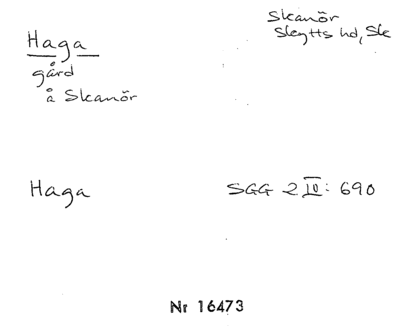 Haga
gård
å Skanör
Skanör
Skytts hd, Sk
Haga
SGG 2 IV: 690
Nr 16473